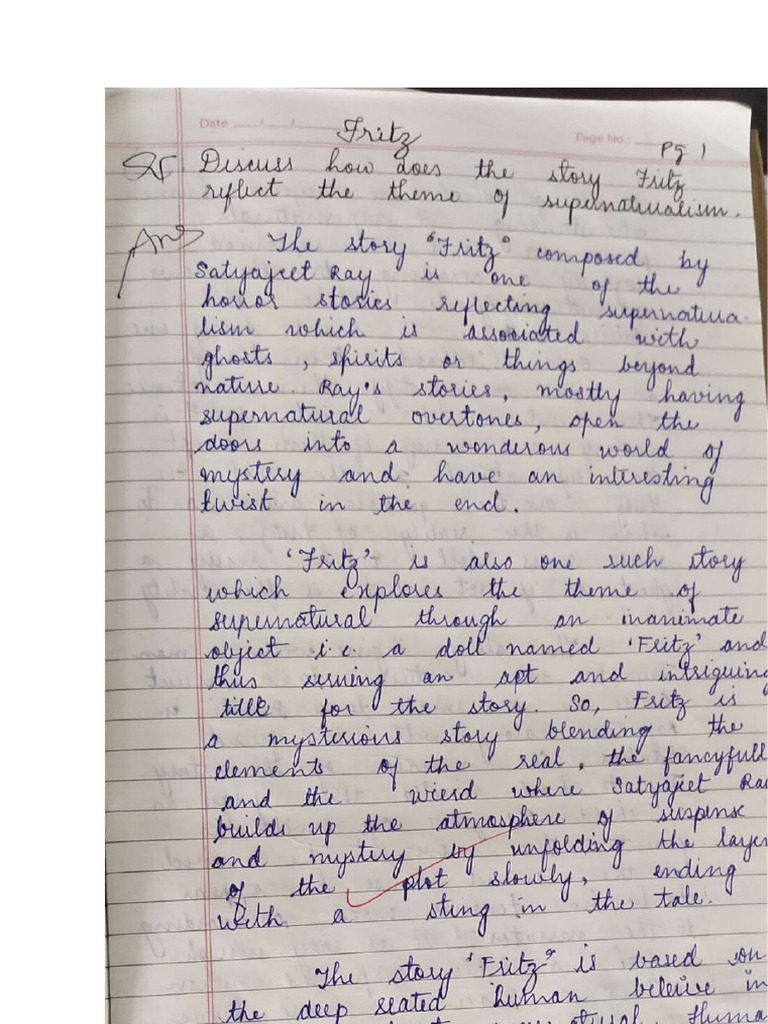 Date
Fritz
Page No.:
Pg 1
Discuss how does the story Fritz
reflect the theme of supernaturalism.
Ans The story "Fritz" composed by
Satyajeet Ray is one of the
horror stories reflecting supernatura-
lism which is associated with
ghosts, spirits or things beyond
nature. Ray's stories, mostly having
supernatural overtones, open the
doors into a wonderous world of
mystery and have an interesting
twist in the end.
'Fritz' is also one such story
which explores the theme of
supernatural through an inanimate
object i.e. a doll named 'Fritz' and
thus serving an apt and intriguing
title for the story. So, Fritz is
a mysterious story blending the
elements of the real, the fancyfull
and the wierd where Satyajeet Ray
builds up the atmosphere of suspense
and mystery by unfolding the layer
of the plot slowly, ending
with a sting in the tale.
The story 'Fritz' is based on
the deep seated human beleive in
Huma